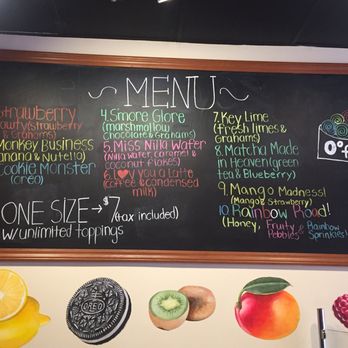 ~ MENU ~
Strawberry
(strawberry
& Grahams)
Monkey Business
Banana & Nutella)
Cookie Monster
(oreo)
4. Smore Glore
(marshmallow
Chocolate & Grahams)
5. Miss Nilla Wafer
(Nilla wafer, caramel &
coconut flakes)
6. I ♥ you a Latte
(coffee & condensed
milk)
7. Key Lime
(fresh limes &
grahams)
8. Matcha Made
in Heaven (green
tea & Blueberry)
9. Mango Madness!
(Mango & Strawberry)
10. Rainbow Road!
(Honey, Fruity Pebbles & Rainbow Sprinkles)
ONE SIZE → $7 (tax included)
w/ unlimited toppings
0°
OREO